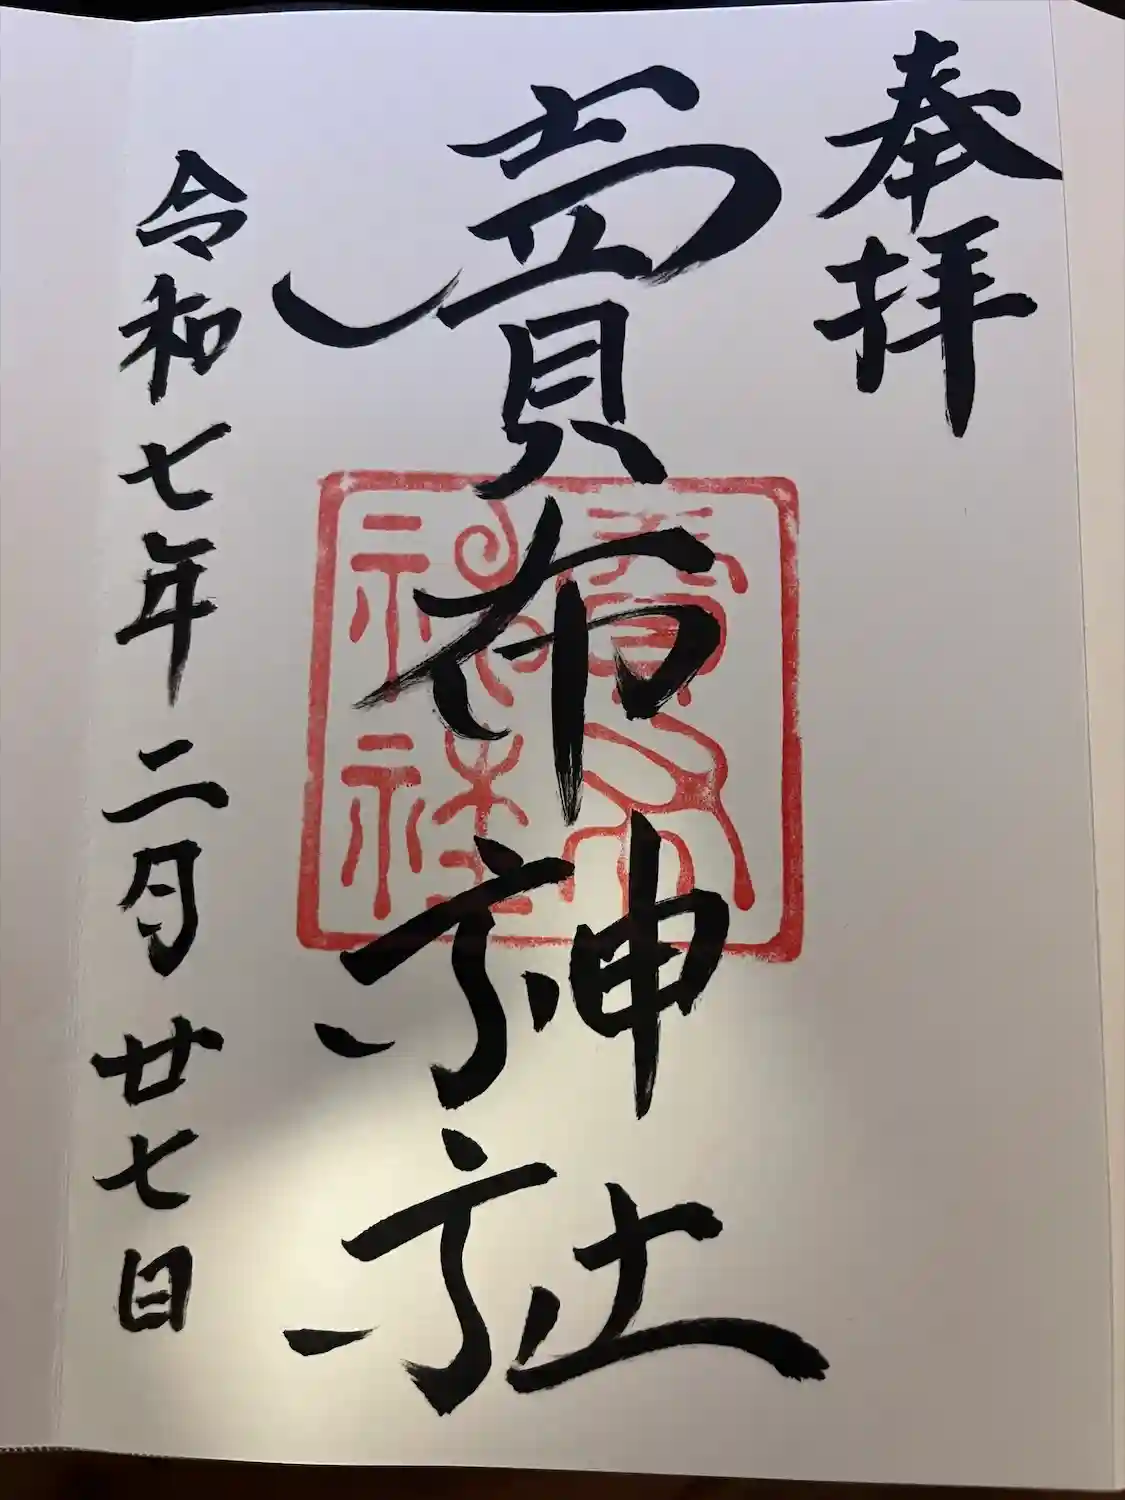 奉拝
賣布神社
賣布
神社
令和七年二月廿七日